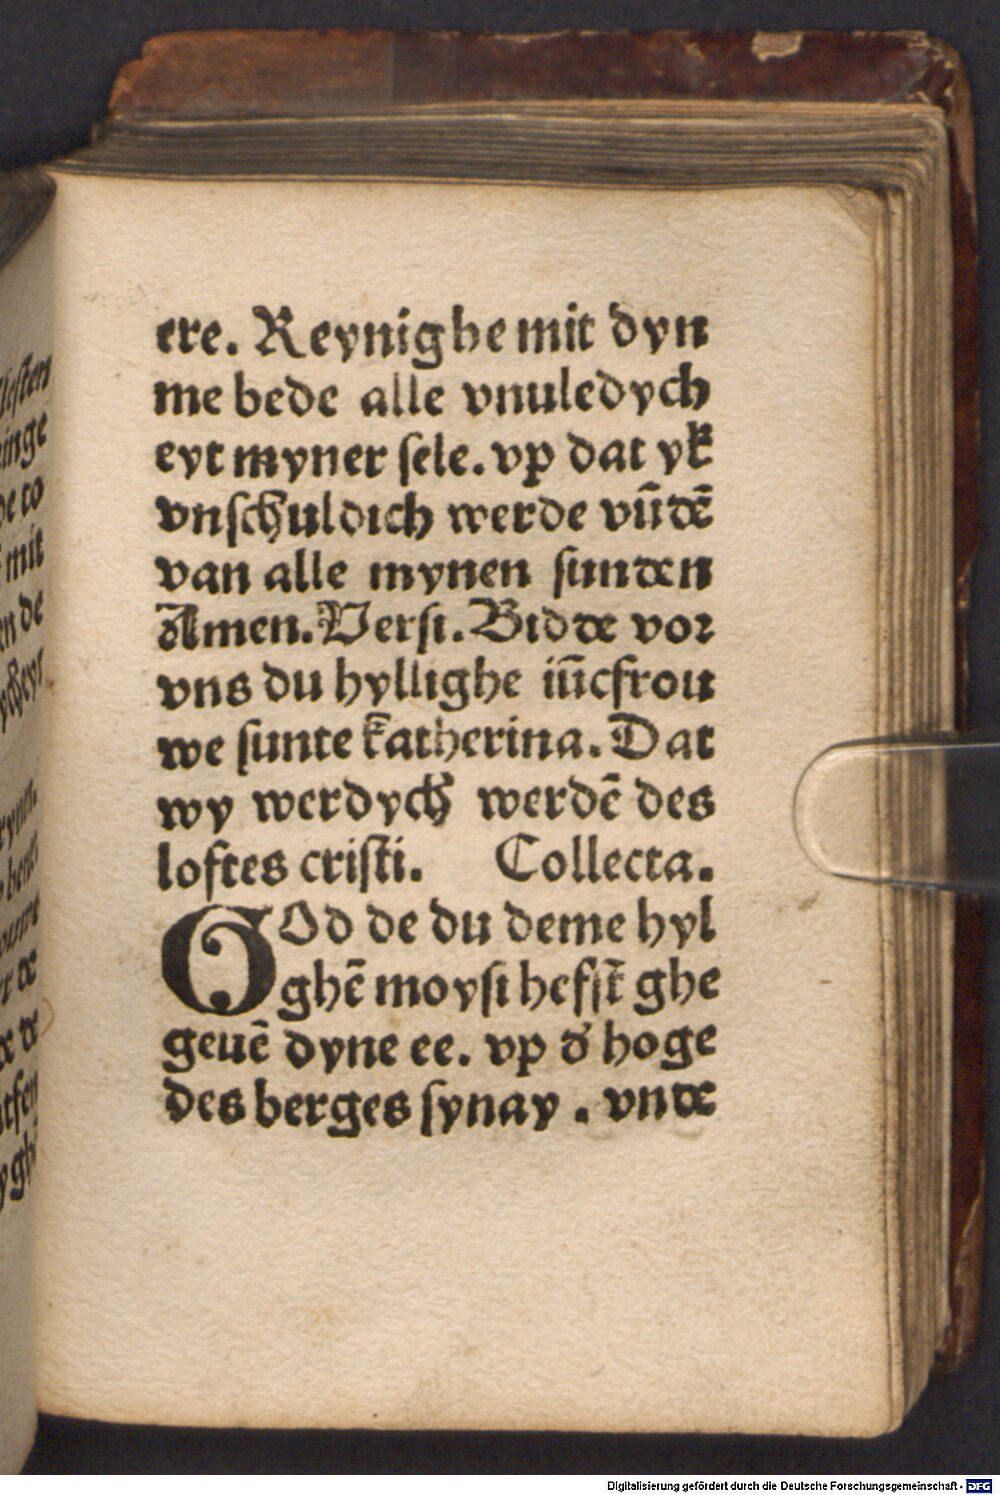 ere. Reynighe mit dyn
me bede alle vnuledych
eyt myner sele. vp dat yk
vnschuldich werde vūdē
van alle mynen sunden
Amen. Versi. Bidde vor
vns du hyllighe iūcfrou
we sunte katherina. Dat
wy werdych werdē des
loftes cristi. Collecta.
GOd de du deme hyl
ghē moysi hefst ghe
geuē dyne ee. vp d' hoge
des berges synay . vnde
Digitalisierung gefördert durch die Deutsche Forschungsgemeinschaft - DFG